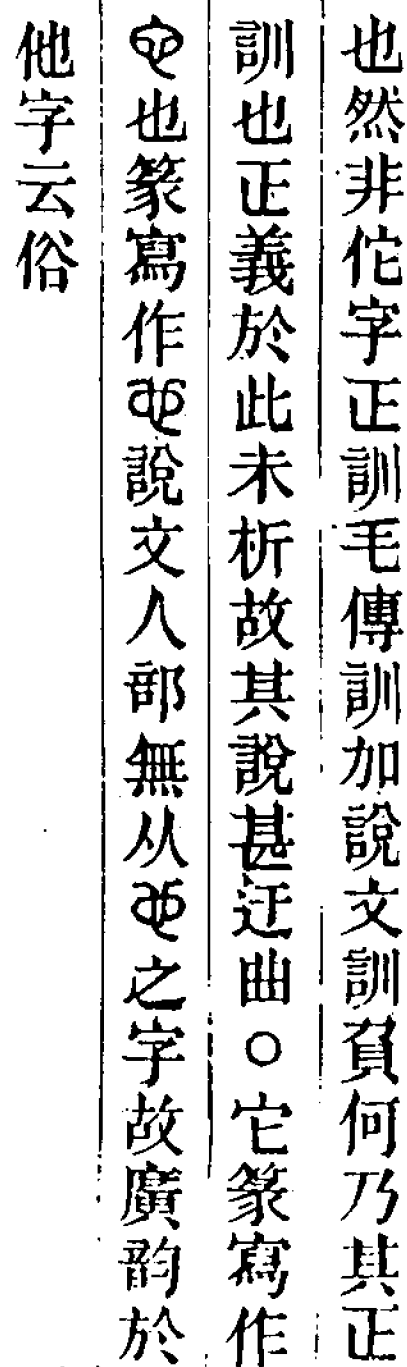 也然非佗字正訓毛傳訓加說文訓負何乃其正
訓也正義於此未析故其說甚迂曲○它篆寫作
也篆寫作說文人部無从之字故廣韵於
他字云俗